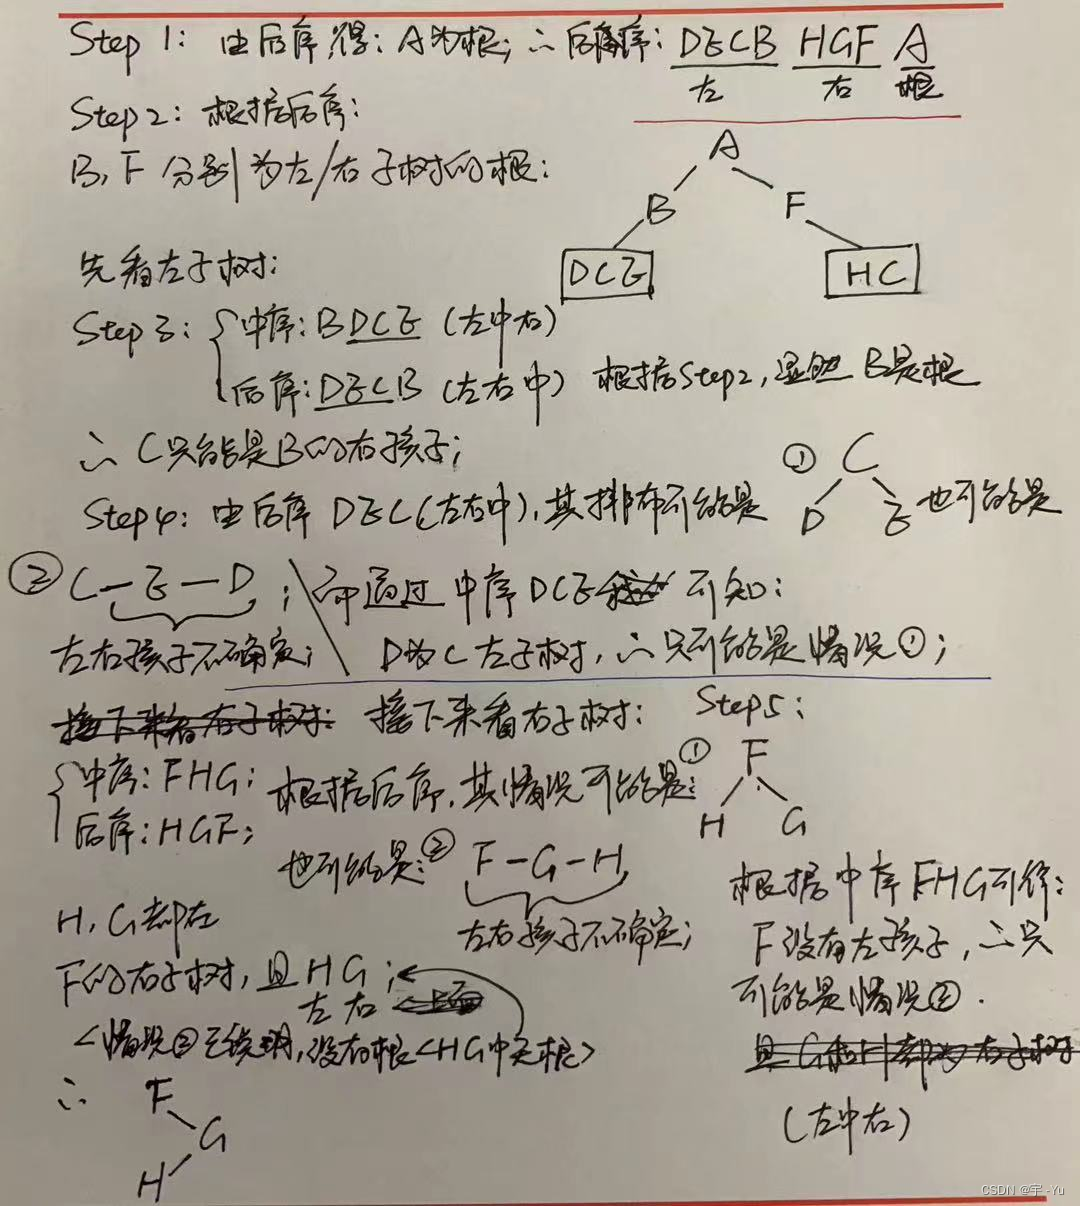 Step 1: 由后序,得: A为根; ∴ 后序: DECB HGF A
左 右 根
Step 2: 根据后序:
B, F 分别为左/右子树的根:
A
B F
DCE HC
先看左子树:
Step 3: { 中序: BDCE (左中右)
后序: DECB (左右中) 根据Step2, 显然 B是根
∴ C只能是B的右孩子;
Step 4: 由后序 DEC(左右中), 其排布可能是 ① C 也可能是
D E
② C—E—D ; 而通过中序DCE 可知:
左右孩子不确定; D为C左子树, ∴只可能是情况①;
接下来看右子树: 接下来看右子树: Step5:
{ 中序: FHG; 根据后序, 其情况可能是: ① F
后序: HGF; H G
也可能是: ② F—G—H
左右孩子不确定;
根据中序FHG可得:
F没有左孩子, ∴只
可能是情况②.
且G和H都为右子树
(左中右)
H, G都在
F的右子树, 且 HG;
左右
<情况②已说明, 没有根<HG中无根>
∴ F
G
H
CSDN @宇 -Yu